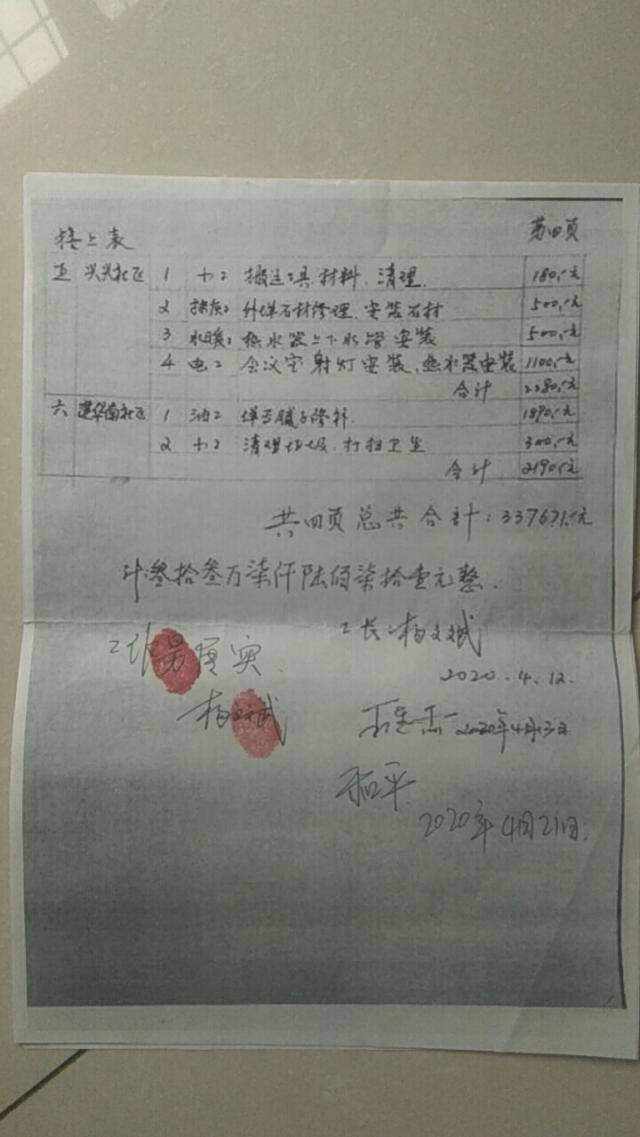 接上表 第四页
五 兴兴社区 1 力工 搬运工具、材料、清理. 180.-元
2 外墙石材修理、安装石材 500.-元
3 水暖: 热水器上下水管安装 500.-元
4 电工 会议室射灯安装、热水器安装 1100.-元
合计 2280.-元
六 建华南社区 1 油工 墙面腻子修补. 1890.-元
2 力工 清理垃圾、打扫卫生 300.-元
合计 2190.-元
共四页总共合计: 337671.-元
计:叁拾叁万柒仟陆佰柒拾壹元整.
工长:杨文斌
工作量属实.
2020.4.12.
杨文斌
2020年4月13日
和平
2020年4月21日.